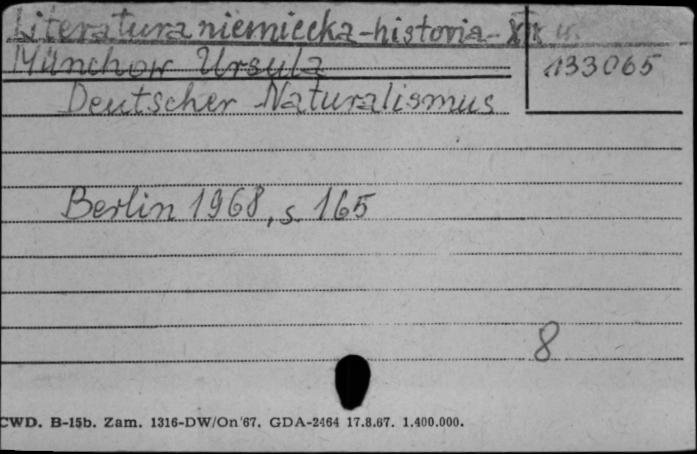 Literatura niemiecka-historia-XIX w.
Münchow Ursula
133065
Deutscher Naturalismus
Berlin 1968, s. 165
8
CWD. B-15b. Zam. 1316-DW/On'67. GDA-2464 17.8.67. 1.400.000.